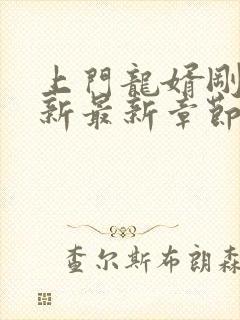 上門龍婿剛
新最新章節
查尔斯布朗森